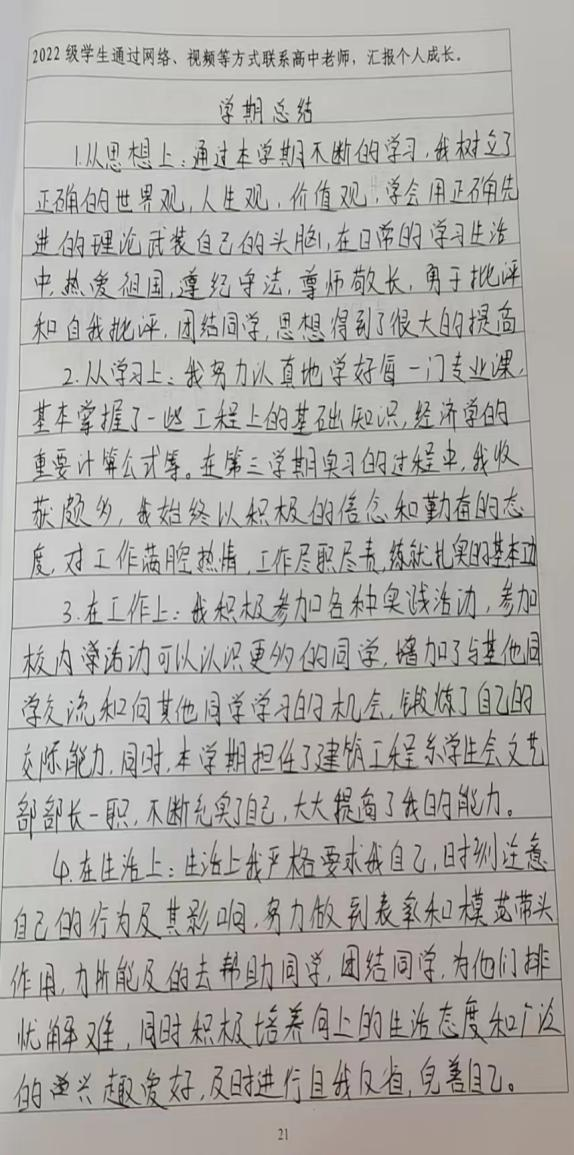 2022 级学生通过网络、视频等方式联系高中老师，汇报个人成长。
学期总结
1.从思想上：通过本学期不断的学习，我树立了
正确的世界观，人生观，价值观，学会用正确先
进的理论武装自己的头脑，在日常的学习生活
中，热爱祖国，遵纪守法，尊师敬长，勇于批评
和自我批评，团结同学，思想得到了很大的提高
2.从学习上：我努力认真地学好每一门专业课，
基本掌握了一些工程上的基础知识，经济学的
重要计算公式等。在第三学期实习的过程中，我收
获颇多，我始终以积极的信念和勤奋的态
度，对工作满腔热情，工作尽职尽责，练就扎实的基本功
3.在工作上：我积极参加各种实践活动，参加
校内活动可以认识更多的同学，增加了与其他同
学交流和向其他同学学习的机会，锻炼了自己的
交际能力，同时，本学期担任了建筑工程系学生会文艺
部部长一职，不断充实了自己，大大提高了我的能力。
4.在生活上：生活上我严格要求我自己，时刻注意
自己的行为及其影响，努力做到表率和模范带头
作用，力所能及的去帮助同学，团结同学，为他们排
忧解难，同时积极培养向上的生活态度和广泛
的兴趣爱好，及时进行自我反省，完善自己。
21